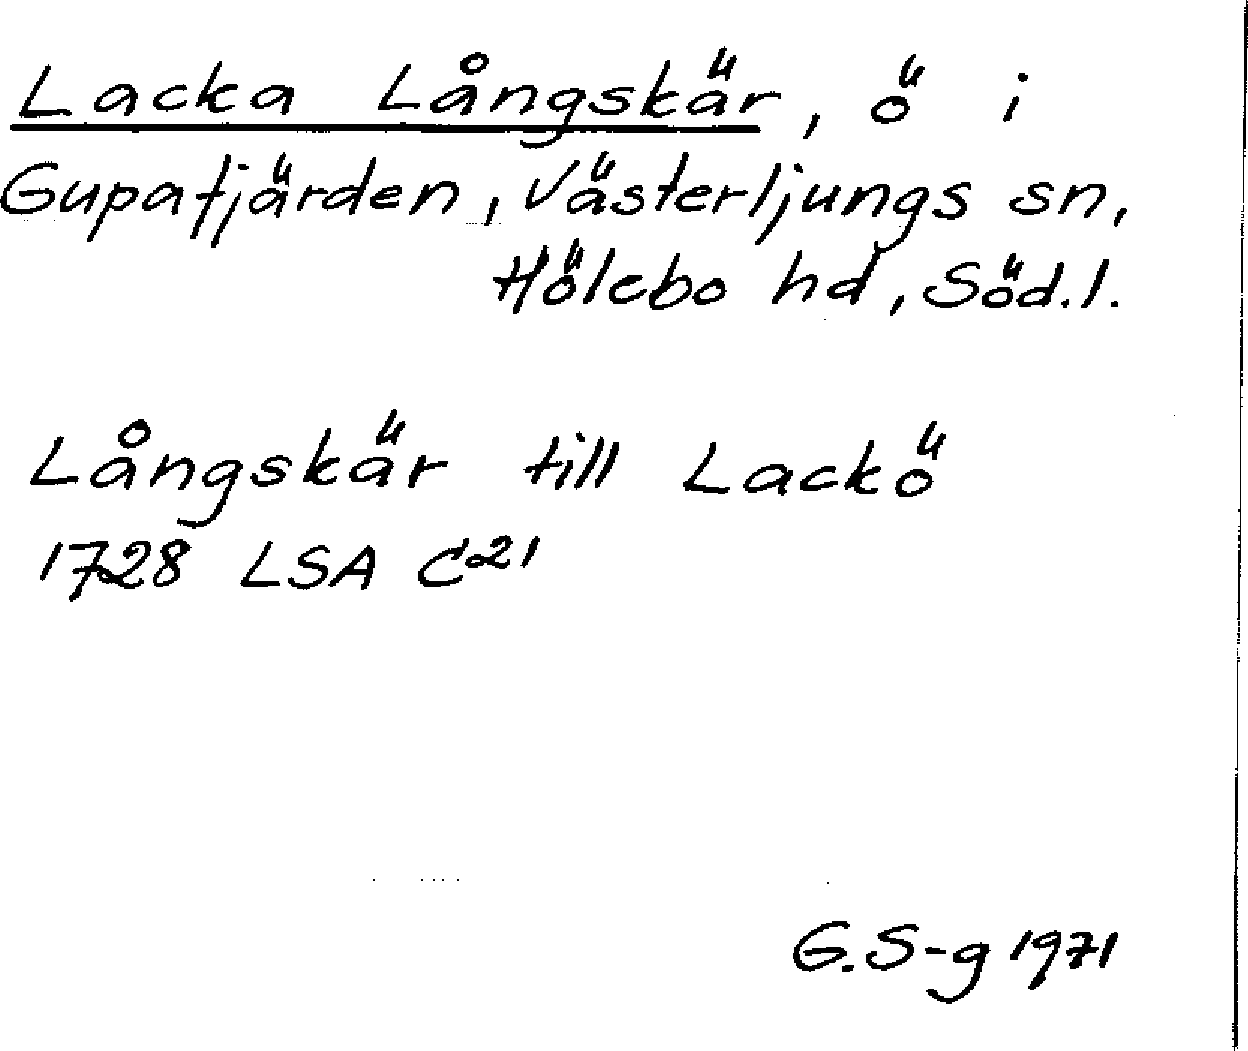 Lacka Långskär, ö i
Gupafjärden, Västerljungs sn,
Hölebo hd, Söd.l.
Långskär till Lackö
1728 LSA C21
G.S-g 1971